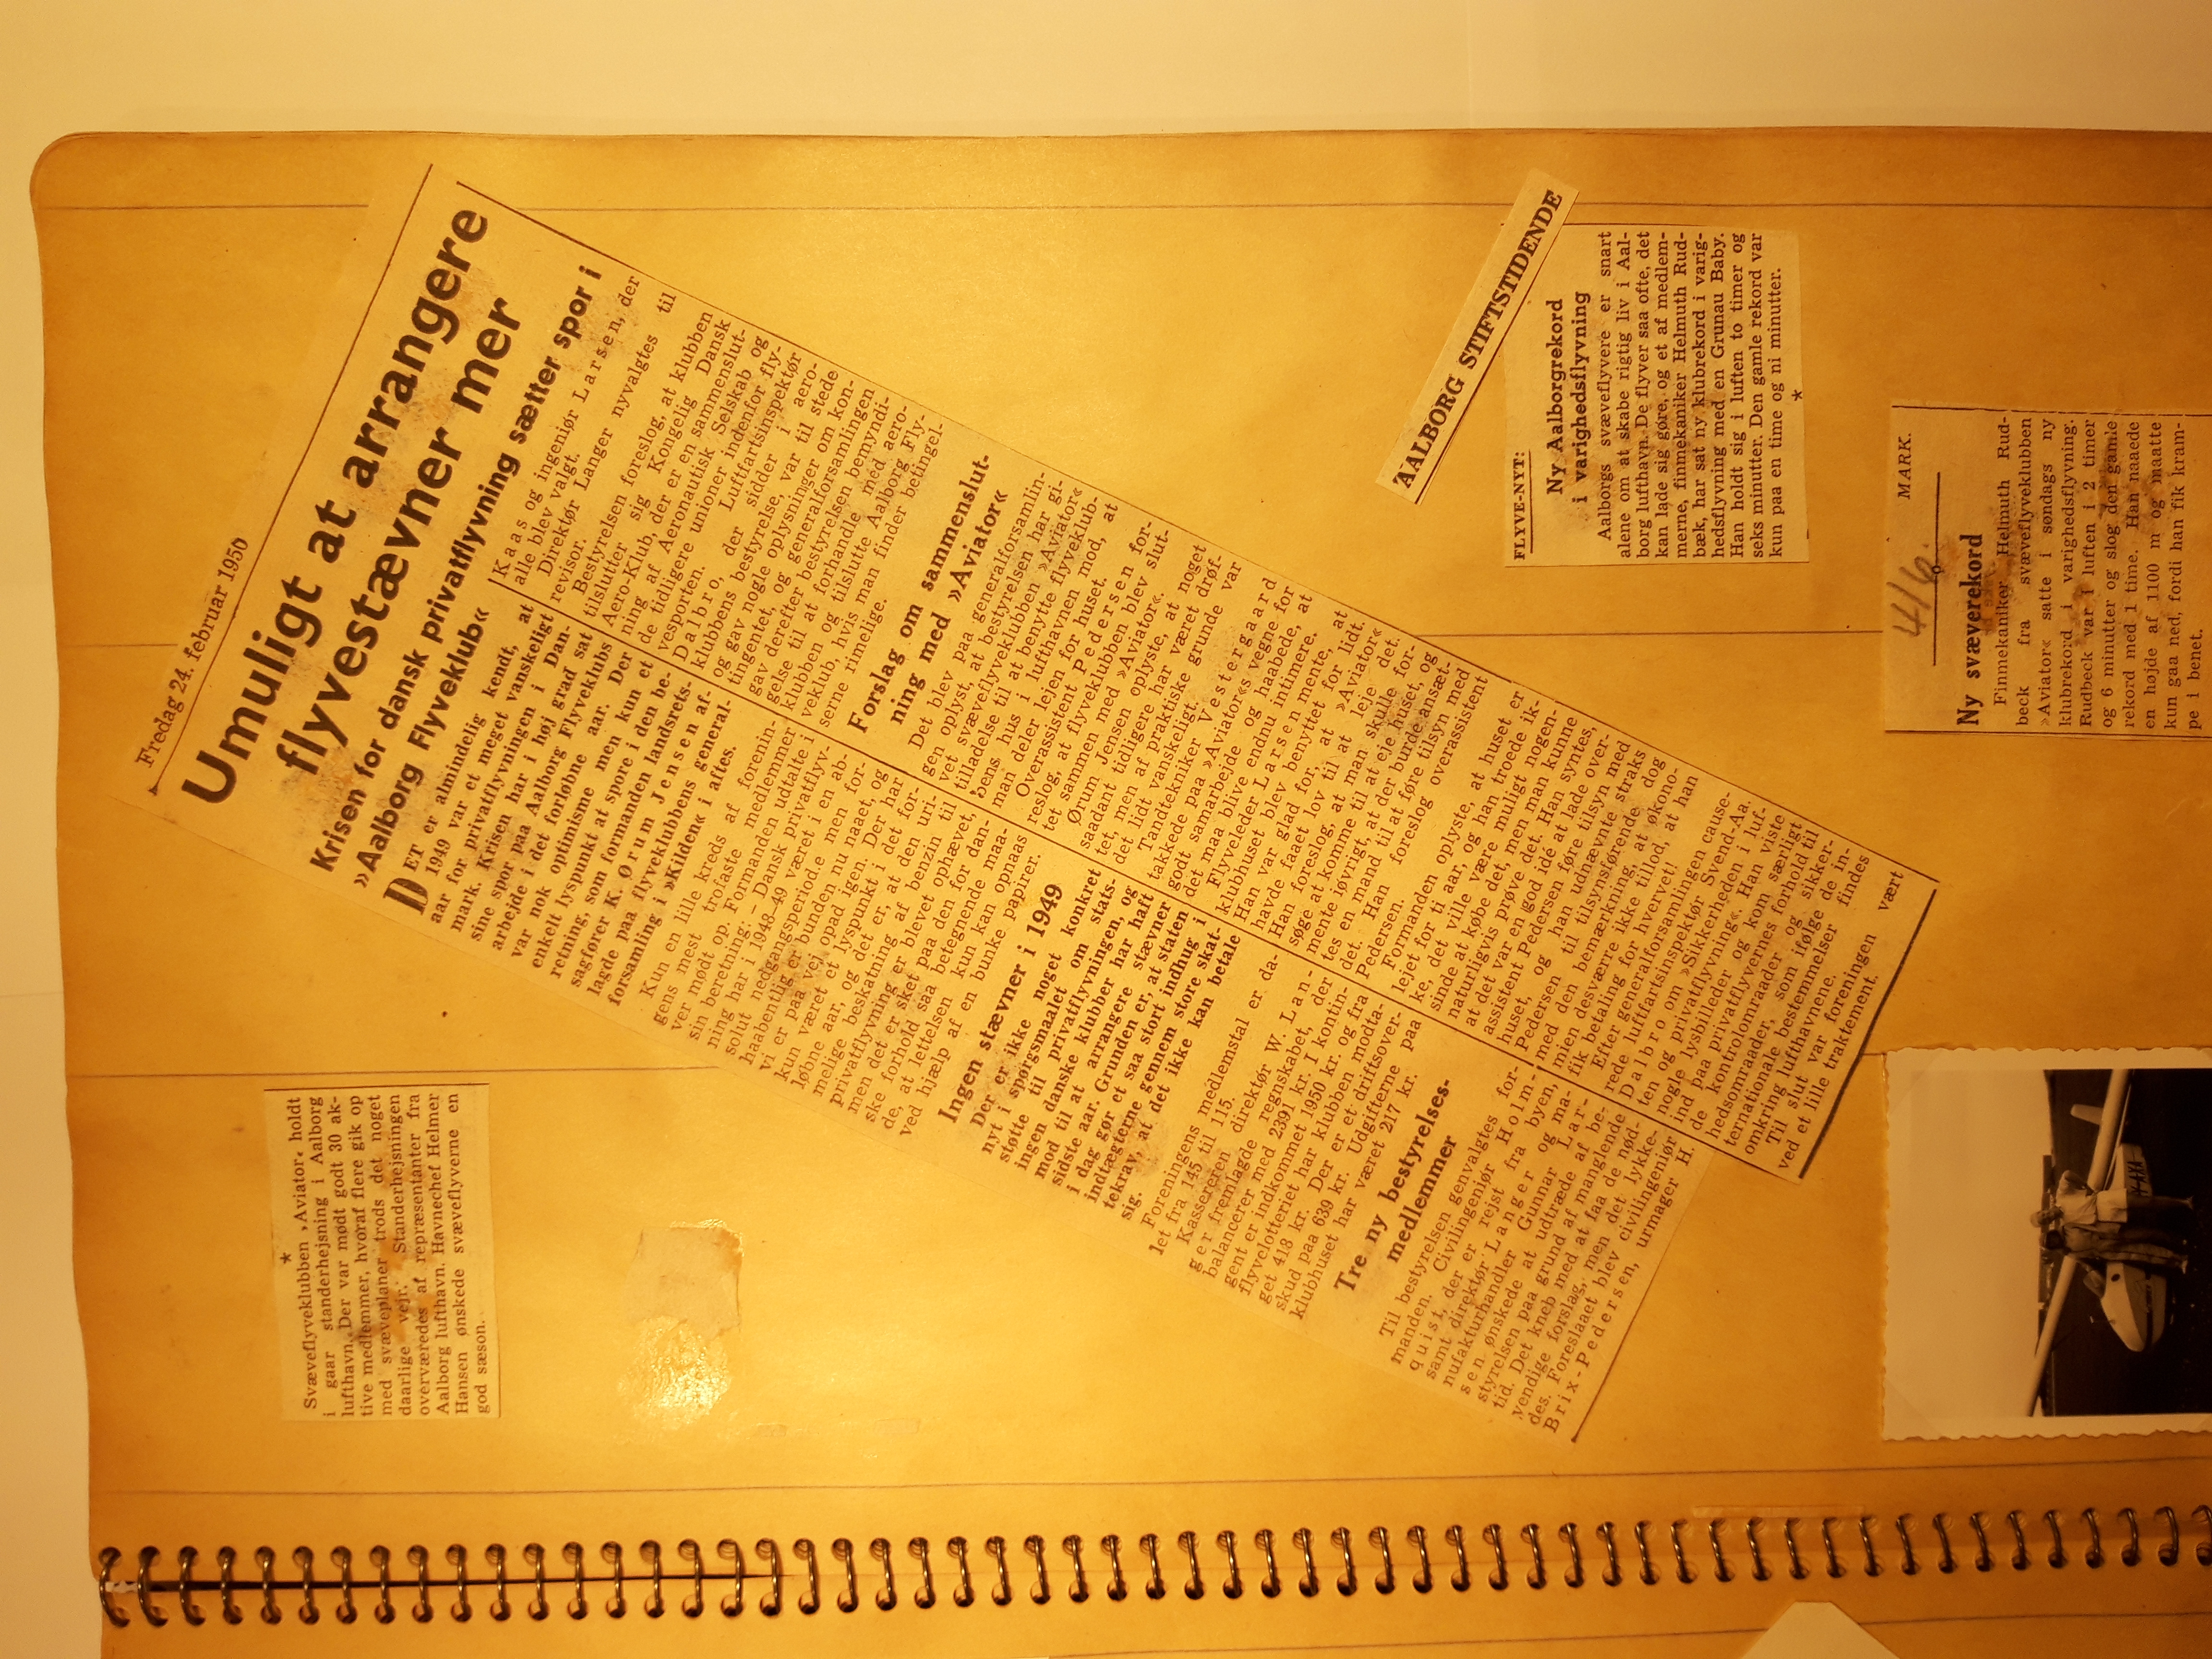 Fredag 24. februar 1950
Umuligt at arrangere
flyvestævner mer
Krisen for dansk privatflyvning sætter spor i
»Aalborg Flyveklub«
DET er almindelig kendt, at
1949 var et meget vanskeligt
aar for privatflyvningen i Dan-
mark. Krisen har i høj grad sat
sine spor paa Aalborg Flyveklubs
arbejde i det forløbne aar. Der
var nok optimisme men kun et
enkelt lyspunkt at spore i den be-
retning, som formanden landsrets-
sagfører K. Ørum Jensen af-
lagde paa flyveklubbens general-
forsamling i »Kilden« i aftes.
Kun en lille kreds af forenin-
gens mest trofaste medlemmer
ver mødt op. Formanden udtalte i
sin beretning: – Dansk privatflyv-
ning har i 1948-49 været i en ab-
solut nedgangsperiode men for-
haabentlig er bunden nu naaet, og
vi er paa vej opad igen. Der har
kun været et lyspunkt i det for-
løbne aar, og det er, at den uri-
melige beskatning af benzin til
privatflyvning er blevet ophævet,
men det er sket paa den for dan-
ske forhold saa betegnende maa-
de, at lettelsen kun kan opnaas
ved hjælp af en bunke papirer.
Ingen stævner i 1949
Der er ikke noget konkret
nyt i spørgsmaalet om stats-
støtte til privatflyvningen, og
ingen danske klubber har haft
mod til at arrangere stævner
sidste aar. Grunden er, at staten
i dag gør et saa stort indhug i
indtægterne gennem store skat-
tekrav, at det ikke kan betale
sig.
Foreningens medlemstal er da-
let fra 145 til 115.
Kassereren direktør W. Lan-
ger fremlagde regnskabet, der
balancerer med 2391 kr. I kontin-
gent er indkommet 1950 kr. og fra
flyvelotteriet har klubben modta-
get 418 kr. Der er et driftsover-
skud paa 639 kr. Udgifterne paa
klubhuset har været 217 kr.
Tre ny bestyrelses-
medlemmer
Til bestyrelsen genvalgtes for-
manden. Civilingeniør Holm-
quist, der er rejst fra byen,
samt direktør Langer og ma-
nufakturhandler Gunnar Lar-
sen ønskede at udtræde af be-
styrelsen paa grund af manglende
tid. Det kneb med at faa de nød-
vendige forslag, men det lykke-
des. Foreslaaet blev civilingeniør
Brix-Pedersen, urmager H.
Kaas og ingeniør Larsen, der
alle blev valgt.
Direktør Langer nyvalgtes til
revisor.
Bestyrelsen foreslog, at klubben
tilslutter sig Kongelig Dansk
Aero-Klub, der er en sammenslut-
ning af Aeronautisk Selskab og
de tidligere unioner indenfor fly-
vesporten. Luftfartsinspektør
Dalbro, der sidder i aero-
klubbens bestyrelse, var til stede
og gav nogle oplysninger om kon-
tingentet, og generalforsamlingen
gav derefter bestyrelsen bemyndi-
gelse til at forhandle med aero-
klubben og tilslutte Aalborg Fly-
veklub, hvis man finder betingel-
serne rimelige.
Forslag om sammenslut-
ning med »Aviator«
Det blev paa generalforsamlin-
gen oplyst, at bestyrelsen har gi-
vet svæveflyveklubben »Aviator«
tilladelse til at benytte flyveklub-
bens hus i lufthavnen mod, at
man deler lejen for huset.
Overassistent Pedersen for-
reslog, at flyveklubben blev slut-
tet sammen med »Aviator«.
Ørum Jensen oplyste, at noget
saadant tidligere har været drøf-
tet, men af praktiske grunde var
det lidt vanskeligt.
Tandtekniker Vestergaard
takkede paa »Aviator«s vegne for
godt samarbejde og haabede, at
det maa blive endnu intimere.
Flyveleder Larsen mente, at
klubhuset blev benyttet for lidt.
Han var glad for, at »Aviator«
havde faaet lov til at leje det.
Han foreslog, at man skulle for-
søge at komme til at eje huset, og
mente iøvrigt, at der burde ansæt-
tes en mand til at føre tilsyn med
det. Han foreslog overassistent
Pedersen.
Formanden oplyste, at huset er
lejet for ti aar, og han troede ik-
ke, det ville være muligt nogen-
sinde at købe det, men man kunne
naturligvis prøve det. Han syntes,
at det var en god idé at lade over-
assistent Pedersen føre tilsyn med
huset, og han udnævnte straks
Pedersen til tilsynsførende dog
med den bemærkning, at økono-
mien desværre ikke tillod, at han
fik betaling for hvervet!
Efter generalforsamlingen cause-
rede luftfartsinspektør Svend-Aa.
Dalbro om »Sikkerheden i luf-
ten og privatflyvning«. Han viste
nogle lysbilleder og kom særligt
ind paa privatflyvernes forhold til
de kontrolomraader og sikker-
hedsomraader, som ifølge de in-
ternationale bestemmelser findes
omkring lufthavnene.
Til slut var foreningen vært
ved et lille traktement.
AALBORG STIFTSTIDENDE
FLYVE-NYT:
Ny Aalborgrekord
i varighedsflyvning
Aalborgs svæveflyvere er snart
alene om at skabe rigtig liv i Aal-
borg lufthavn. De flyver saa ofte, det
kan lade sig gøre, og et af medlem-
merne, finmekaniker Helmuth Rud-
bæk, har sat ny klubrekord i varig-
hedsflyvning med en Grunau Baby.
Han holdt sig i luften to timer og
seks minutter. Den gamle rekord var
kun paa en time og ni minutter.
*
MARK.
4/6.
Ny sværekord
Finmekaniker Helmuth Rud-
beck fra svæveflyveklubben
»Aviator« satte i søndags ny
klubrekord i varighedsflyvning.
Rudbeck var i luften i 2 timer
og 6 minutter og slog den gamle
rekord med 1 time. Han naaede
en højde af 1100 m og maatte
kun gaa ned, fordi han fik kram-
pe i benet.
*
Svæveflyveklubben »Aviator« holdt
i gaar standerhejsning i Aalborg
lufthavn. Der var mødt godt 30 ak-
tive medlemmer, hvoraf flere gik op
med svæveplaner trods det noget
daarlige vejr. Standerhejsningen
overværedes af repræsentanter fra
Aalborg lufthavn. Havnechef Helmer
Hansen ønskede svæveflyverne en
god sæson.